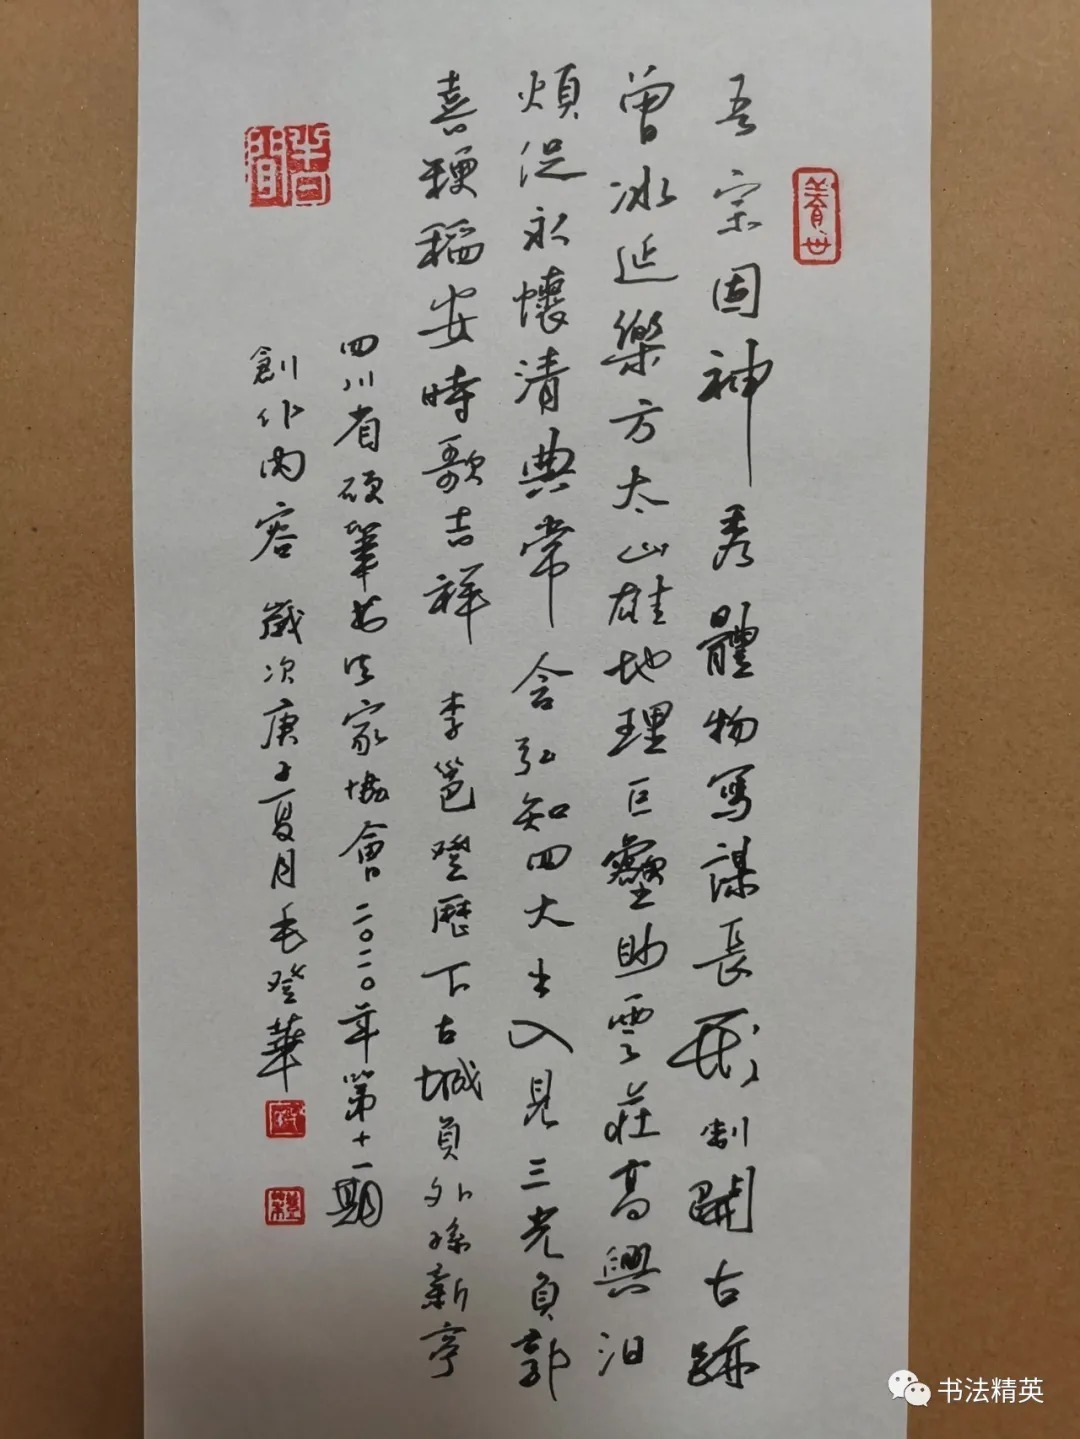 吾宗固神秀體物寫謀長形制開古跡
曾冰延樂方太山雄地理巨壑眇雲莊高興汨
煩促永懷清典常含弘知四大出入見三光負郭
喜粳稻安時歌吉祥 李邕登歷下古城員外孫新亭
四川省硬筆书法家協會二〇二〇年第十一期
創作內容 歲次庚子夏月毛登華
養世
書法精英